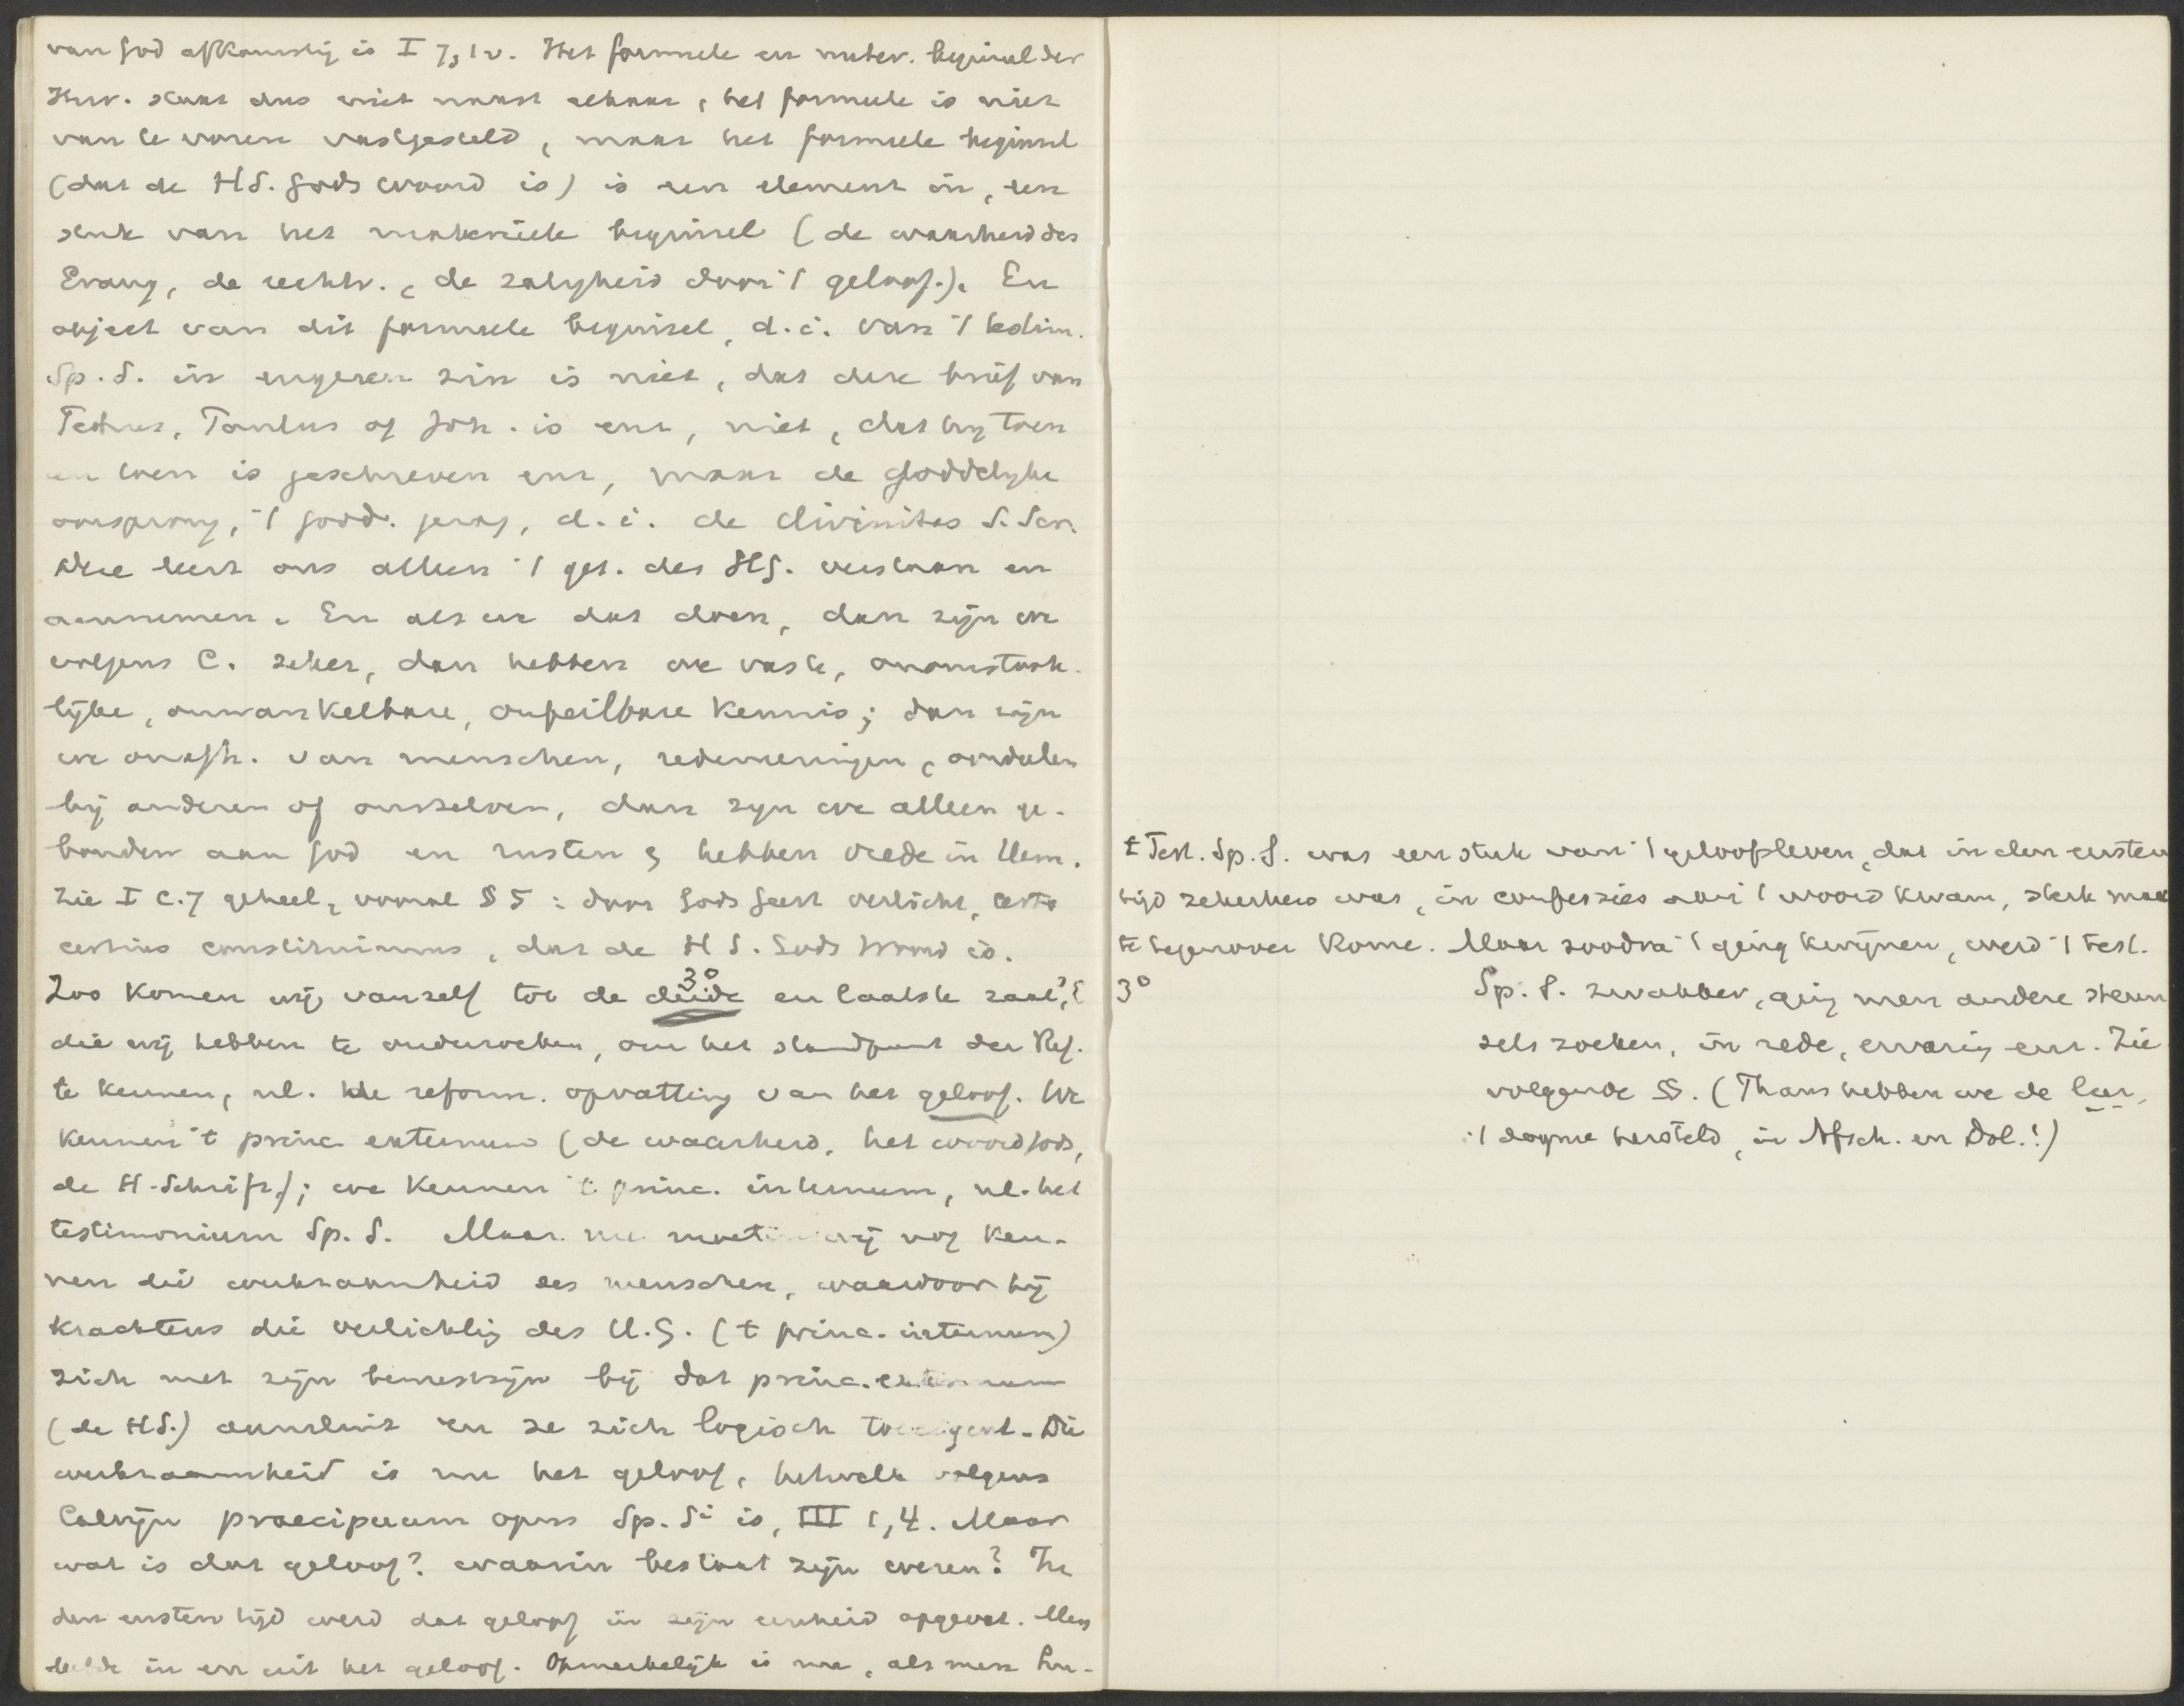 van God afkomstig is I 7, 1 v. Het formele en mater. beginsel der
Herv. staat dus niet naast elkaar, het formeele is niet
van te voren vastgesteld, maar het formeele beginsel
(dat de HS. Gods woord is) is een element in, een
stuk van het materiële beginsel (de waarheid des
Evang, de rechtv., de zaligheid door 't geloof.). En
object van dit formeele beginsel, d.i. van 't testim.
Sp. S. in engeren zin is niet, dat deze brief van
Petrus, Paulus of Joh. is enz, niet, dat hij toen
en toen is geschreven enz, maar de Goddelijke
oorsprong, 't godd. gezag, d.i. de divinitas S. Scr.
Die leert ons alleen 't get. des HG. verstaan en
aannemen. En als we dat doen, dan zijn we
volgens C. zeker, dan hebben we vaste, onomstoote-
lijke, onwankelbare, onfeilbare kennis; dan zijn
we onafh. van menschen, redeneeringen, oordeelen
bij anderen of onszelven, dan zijn we alleen ge-
bonden aan God en rusten & hebben vrede in Hem.
Zie I C. 7 geheel, vooral § 5: door Gods Geest verlicht, certo
certius constituimus, dat de H S. Gods Woord is.
3°
Zoo komen wij vanzelf tot de derde en laatste zaak,
die wij hebben te onderzoeken, om het standpunt der Ref.
te kennen, nl. de reform. opvatting van het geloof. We
kennen 't princ externum (de waarheid, het woord Gods,
de H. Schrift); we kennen 't princ. internum, nl. het
testimonium Sp. S. Maar nu moeten wij nog ken-
nen die werkzaamheid des menschen, waardoor hij
krachtens die verlichting des H.G. (t princ. internum)
zich met zijn bewustzijn bij dat princ. externum
(de HS.) aansluit en ze zich logisch toeeigent. Die
werkzaamheid is nu het geloof, hetwelk volgens
Calvijn praecipuum opus Sp. Si is, III 1, 4. Maar
wat is dat geloof? waarin bestaat zijn wezen? In
den eersten tijd werd dat geloof in zijn eenheid opgevat. Men
leefde in en uit het geloof. Opmerkelijk is nu, als men Lu-
t Test. Sp. S. was een stuk van 't geloofsleven, dat in den eersten
tijd zekerheid was, in confessies aan 't woord kwam, sterk maakte
tegenover Rome. Maar zoodra 't ging kwijnen, werd 't test.
3° Sp. S. zwakker, ging men andere steun
sels zoeken, in rede, ervaring enz. Zie
volgende §§. (Thans hebben we de leer,
't dogma hersteld, in Afsch. en Dol.!)